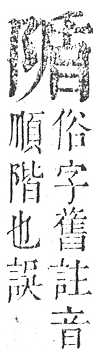 俗字舊註音
順階也誤